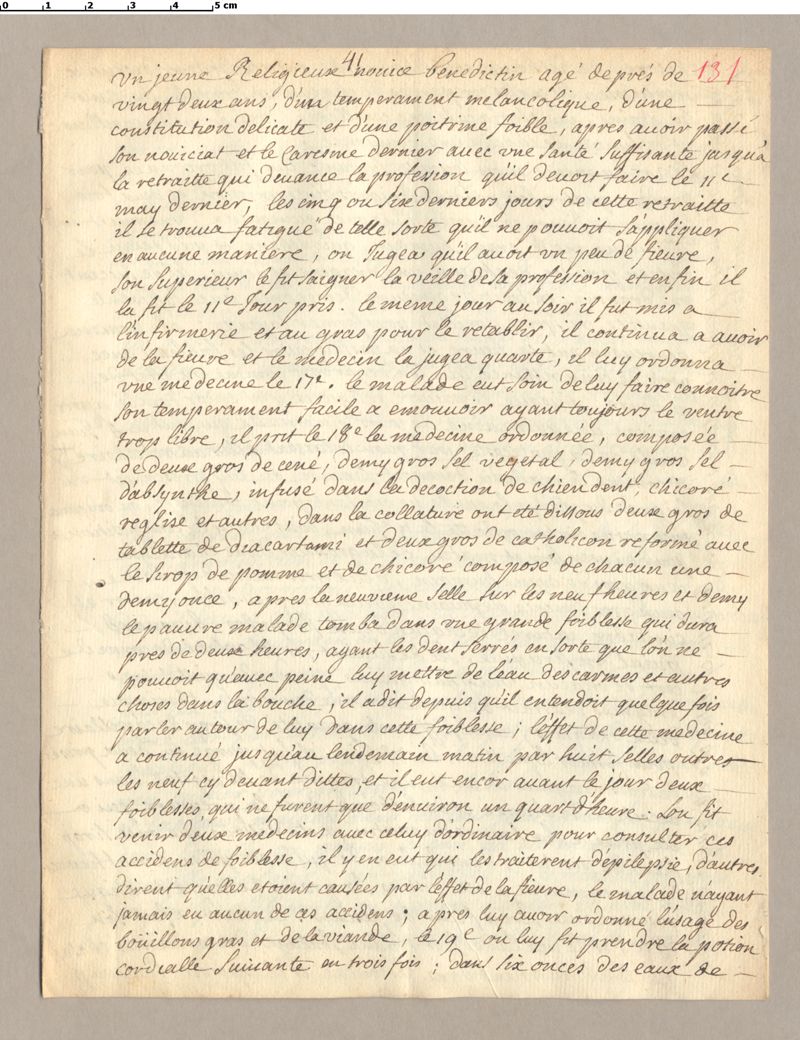 0 1 2 3 4 5 cm
41
131
Vn jeune Religieux nouice benedictin agé de prés de
vingt deux ans, d'un temperament melancolique, d'une
constitution delicate et d'une poitrine foible, apres auoir passé
son nouiciat et le Caresme dernier auec vne santé suffisante jusqu'a
la retraitte qui deuance la profession qu'il deuoit faire le 11e
may dernier, les cinq ou six derniers jours de cette retraitte
il se trouua fatigué de telle sorte qu'il ne pouuoit s'appliquer
en aucune maniere, on Jugea qu'il auoit vn peu de fieure,
son superieur le fit saigner la veille de sa profession et enfin il
la fit le 11e Jour pris. le meme jour au soir il fut mis a
l'infirmerie et au gras pour le retablir, il continua a auoir
de la fieure et le medecin la jugea quarte, il luy ordonna
vne medecine le 17e. le malade eut soin de luy faire connoitre
son temperament facile a emouuoir ayant toujours le ventre
trop libre, il prit le 18e la medecine ordonnée, composée
de deux gros de cené, demy gros sel vegetal, demy gros sel
d'absynthe, infusé dans la decoction de chiendent, chicoré
reglise et autres, dans la collature ont eté dissous deux gros de
tablette de diacartami et deux gros de catholicon reformé auec
le sirop de pomme et de chicoré composé de chacun une
demy once, apres la neuvieme selle sur les neuf heures et demy
le pauure malade tomba dans vne grande foiblesse qui dura
pres de deux heures, ayant les dent serrés en sorte que l'on ne
pouuoit qu'auec peine luy mettre de l'eau des carmes et autres
choses dans la bouche, il a dit depuis qu'il entendoit quelque fois
parler autour de luy dans cette foiblesse; l'effet de cette medecine
a continué jusqu'au lendemain matin par huit selles outres
les neuf cy deuant dittes, et il eut encor auant le jour deux
foiblesses, qui ne furent que d'enuiron un quart d'heure. L'on fit
venir deux medecins auec celuy d'ordinaire pour consulter ces
accidens de foiblesse, il y en eut qui les traiterent d'epilepsie, d'autres
dirent qu'elles etoient causées par l'effet de la fieure, le malade n'ayant
jamais eu aucun de ces accidens; apres luy auoir ordonné l'usage des
boüillons gras et de la viande, le 19e on luy fit prendre la potion
cordialle suiuante en trois fois; dans six onces des eaux de